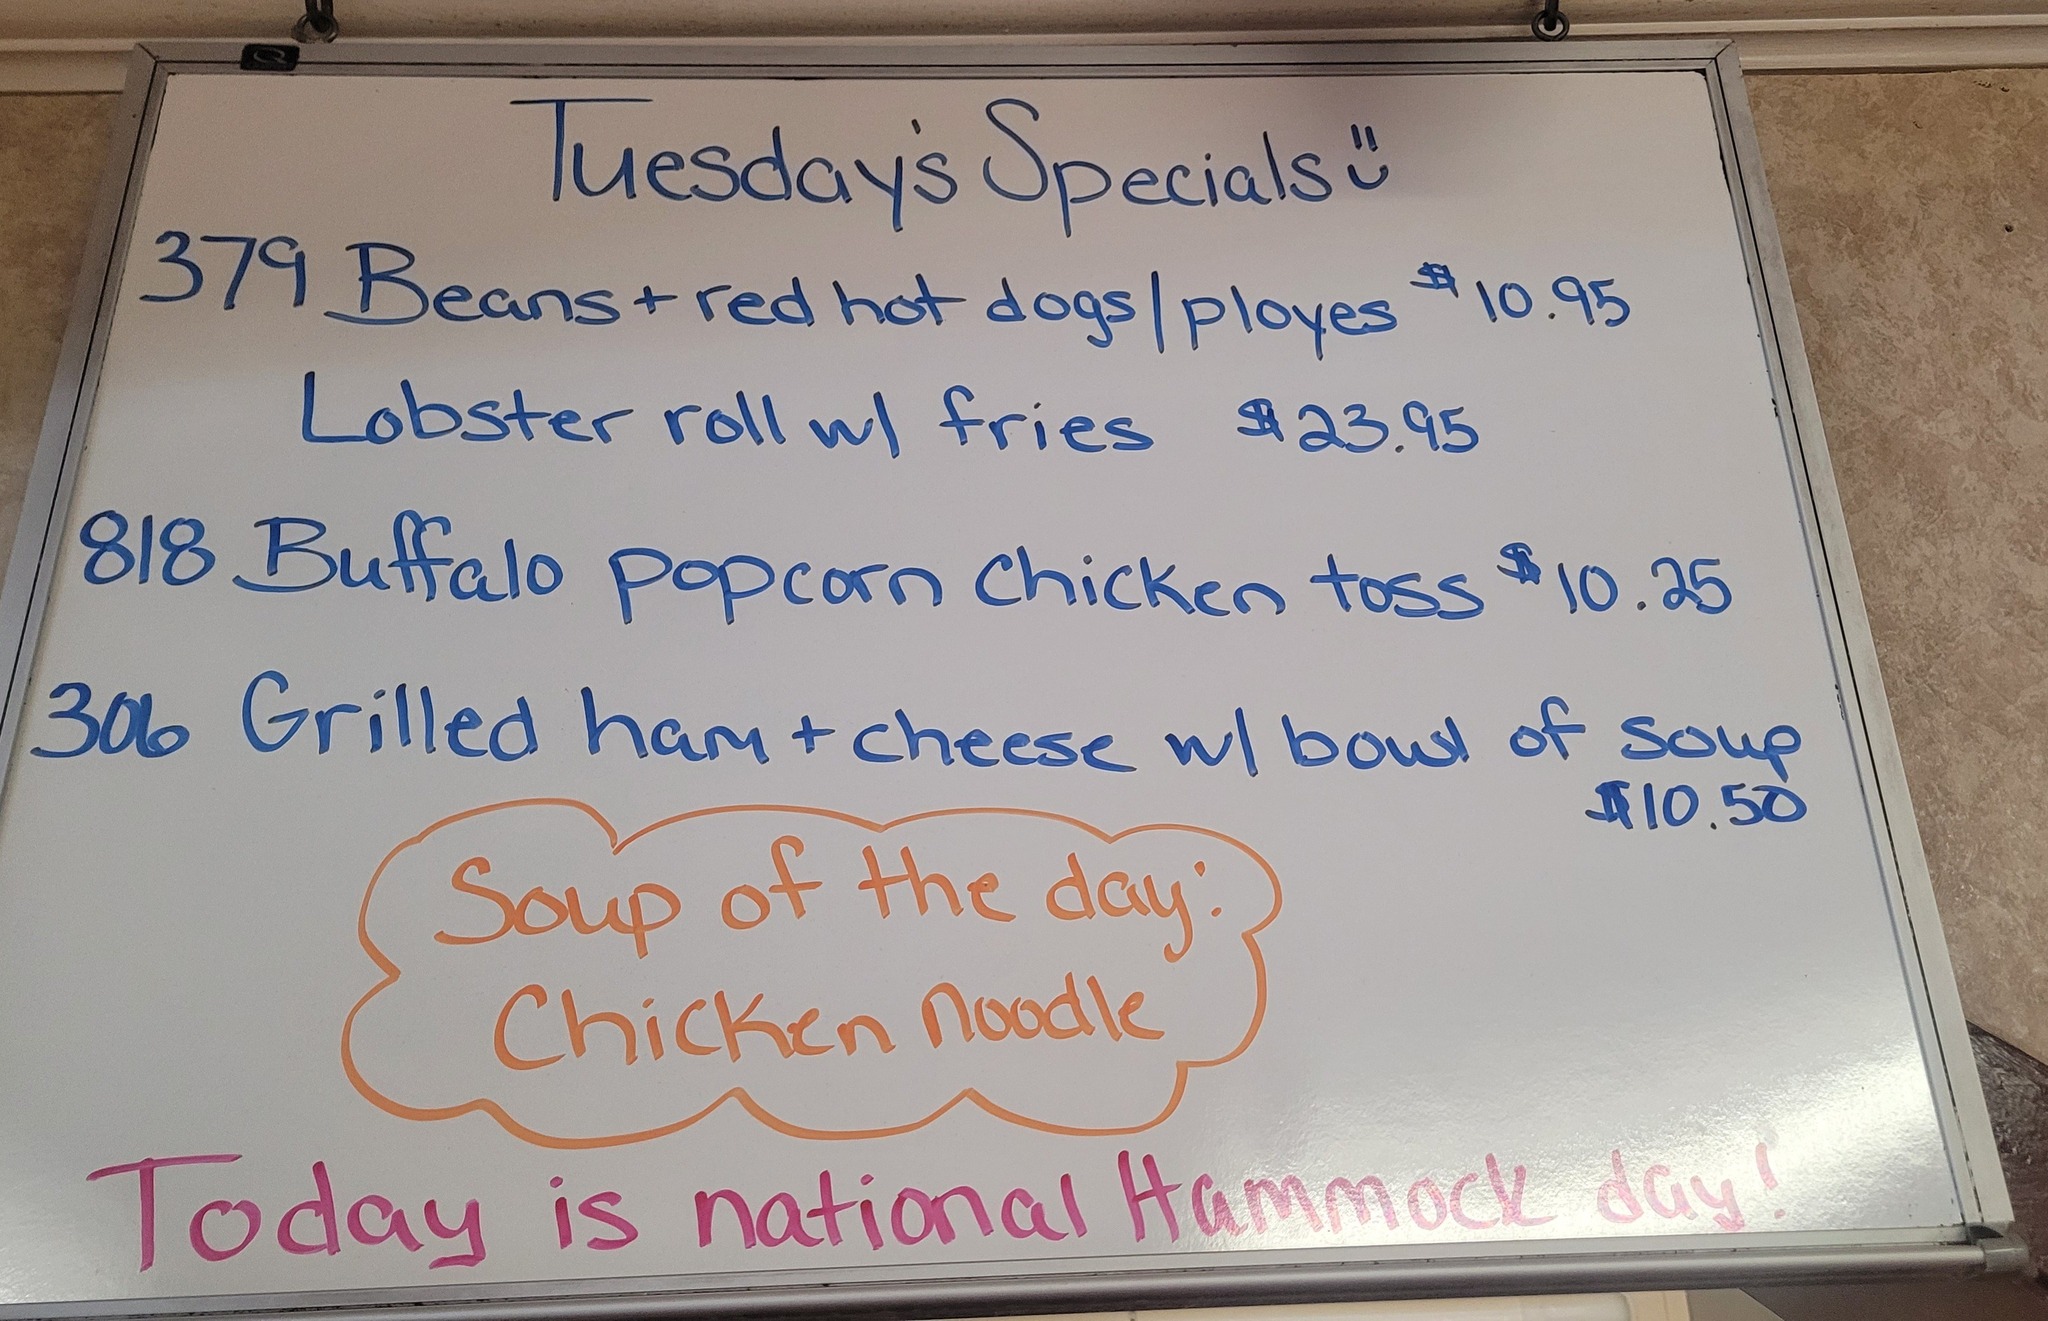 Tuesday's Specials
379 Beans + red hot dogs/ployes $10.95
Lobster roll w/ fries $23.95
818 Buffalo popcorn chicken toss $10.25
306 Grilled ham + cheese w/ bowl of soup
$10.50
Soup of the day:
Chicken noodle
Today is national Hammock day!